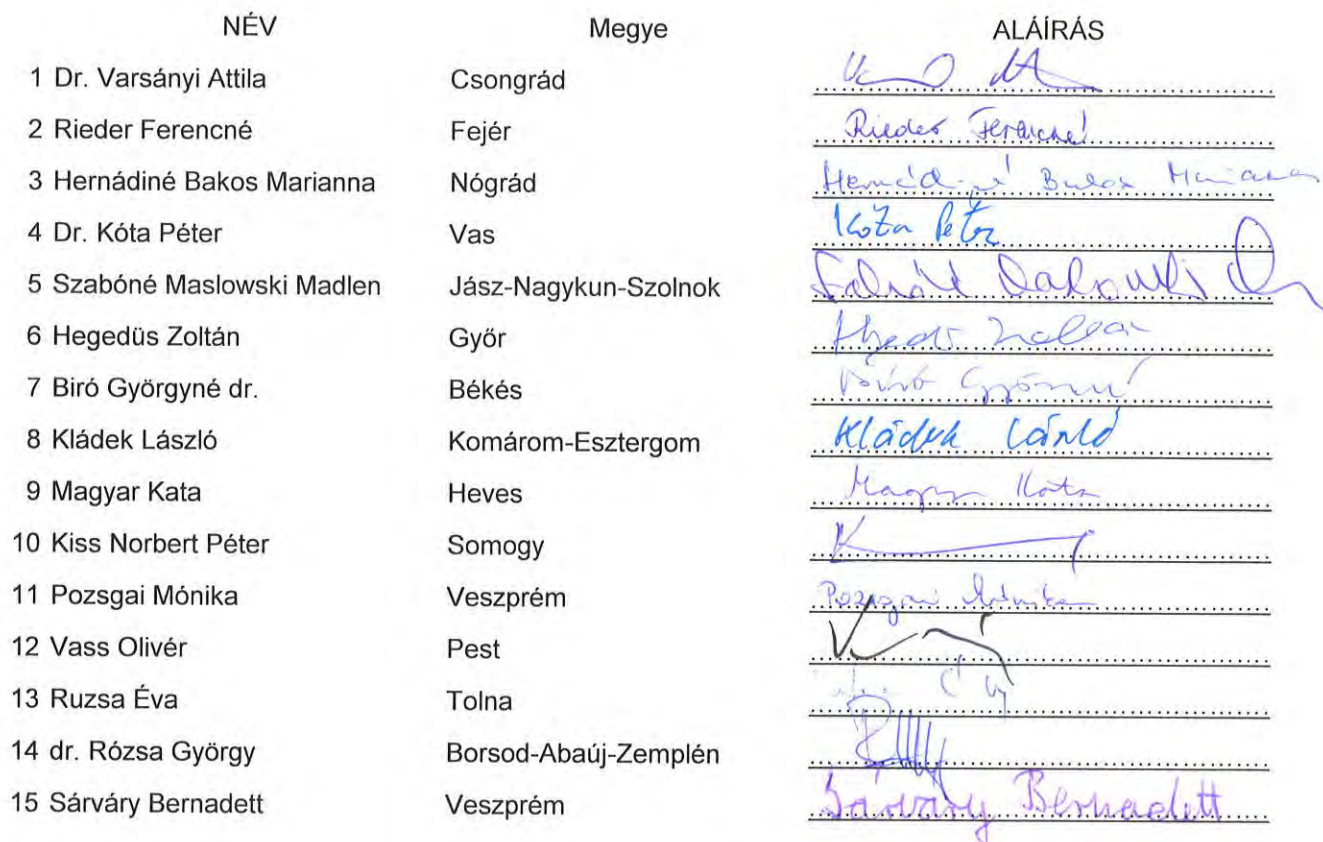 NÉV Megye ALÁÍRÁS
1 Dr. Varsányi Attila Csongrád
2 Rieder Ferencné Fejér Rieder Ferencné
3 Hernádiné Bakos Marianna Nógrád
4 Dr. Kóta Péter Vas Kóta Péter
5 Szabóné Maslowski Madlen Jász-Nagykun-Szolnok
6 Hegedüs Zoltán Győr
7 Biró Györgyné dr. Békés
8 Kládek László Komárom-Esztergom Kládek László
9 Magyar Kata Heves Magyar Kata
10 Kiss Norbert Péter Somogy
11 Pozsgai Mónika Veszprém Pozsgai Mónika
12 Vass Olivér Pest
13 Ruzsa Éva Tolna
14 dr. Rózsa György Borsod-Abaúj-Zemplén
15 Sárváry Bernadett Veszprém Sárváry Bernadett